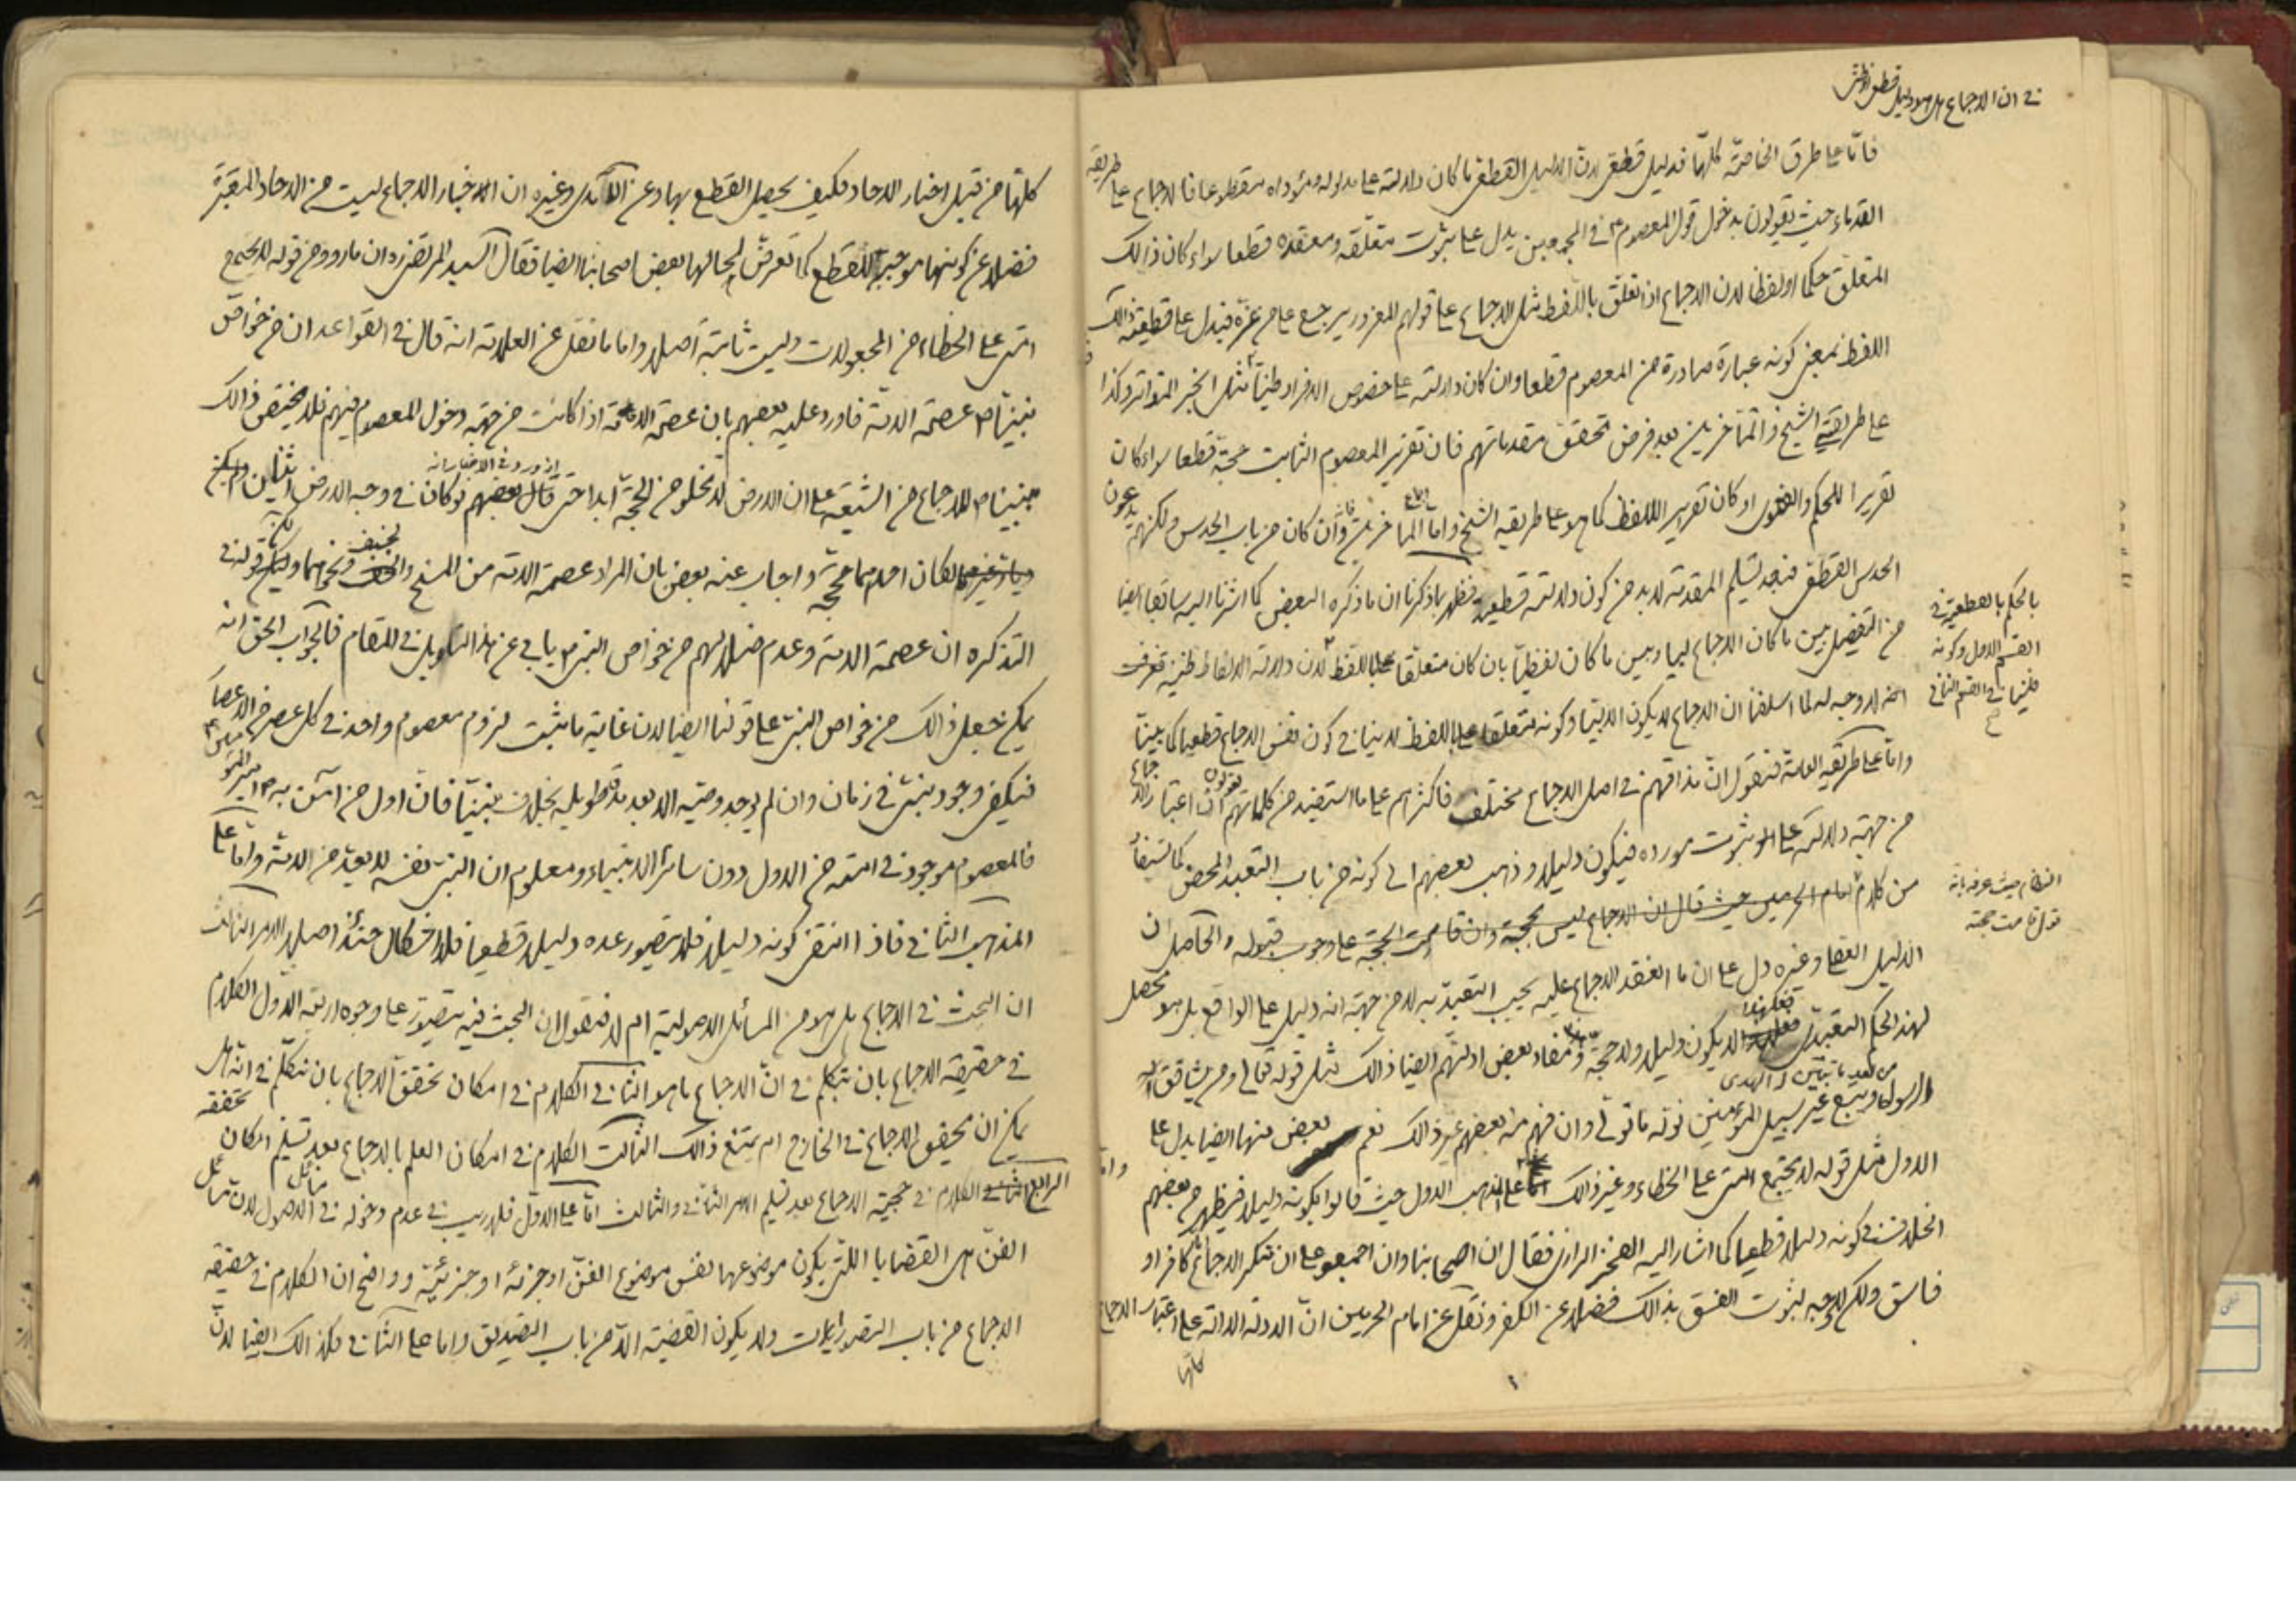 في ان الاجماع هل هو دليل قطعي او ظني
فاما على طرق الخاصة كلها فدليل قطعي لان الدليل القطعي ما كان دلالته على مدلوله ومؤداه مقطوعا فالاجماع على طريقة
القدماء حيث يقولون بدخول قول المعصوم في المجمعين يدل على ثبوت متعلقه ومعقده قطعا سواء كان ذالك
المتعلق حكما او لفظا لان الاجماع اذا تعلق باللفظ مثل الاجماع على قولهم المغرور يرجع على من غره فيدل على قطعية ذالك
اللفظ بمعنى كونه عبارة صادرة من المعصوم قطعا وان كان دلالته على خصوص الافراد ظنيا مثل الخبر المتواتر وكذا
على طريقتي الشيخ والمتاخرين بعد فرض تحقق مقدماتهم فان تقرير المعصوم الثابت حجة قطعا سواء كان
تقريرا للحكم والفتوى او كان تقريرا للفظ كما هو على طريقة الشيخ واما المتاخرين وان كان من باب الحدس ولكنهم يدعون
الحدس القطعي فبعد تسليم المقدمة لابد من كون دلالته قطعية فظهر بما ذكرنا ان ما ذكره البعض كما اشرنا اليه سابقا ايضا
من التفصيل بين ما كان الاجماع لبيا وبين ما كان لفظيا بان كان متعلقا باللفظ لان دلالة الالفاظ ظنية
بالحكم بالقطعية في
القسم الاول وكونه
ظنيا في القسم الثاني
انه لا وجه له لما اسلفنا ان الاجماع لا يكون الا لبيا وكونه متعلقا باللفظ لا ينافي كون نفس الاجماع قطعيا كما بينا
واما على طريقة العامة فنقول ان مذاقهم في اصل الاجماع مختلف فاكثرهم على ما استفيد من كلماتهم يقولون ان اعتبار الاجماع
من جهة دلالته على ثبوت مورده فيكون دليلا وذهب بعضهم الى كونه من باب التعبد المحض كما يستفاد
من كلام امام الحرمين حيث قال ان الاجماع ليس بحجة وان قامت الحجة على وجوب قبوله والحاصل ان
النظام حيث عرفه بانه
قول قامت حجته
الدليل العقلي وغيره دل على ان ما انعقد الاجماع عليه يجب التعبد به لا من جهة انه دليل على الواقع بل هو محصل
لهذا الحكم التعبدي فعلى هذا لا يكون دليلا ولا حجة ومفاد بعض ادلتهم ايضا ذالك مثل قوله تعالى ومن يشاقق
الرسول من بعد ما تبين له الهدى ويتبع غير سبيل المؤمنين نوله ما تولى وان فهم منه بعضهم غير ذالك نعم بعض منها ايضا يدل على
الاول مثل قوله لا يجتمع امتي على الخطاء وغير ذالك اما على المذهب الاول حيث قالوا بكونه دليلا فيظهر من بعضهم
الخلاف في كونه دليلا قطعيا كما اشار اليه الفخر الرازي فقال ان اصحابنا وان اجمعوا على ان منكر الاجماع كافر او
فاسق ولكن لا وجه لثبوت الفسق بذالك فضلا عن الكفر ونقل عن امام الحرمين ان الادلة الدالة على اعتبار الاجماع
كلها
كلها من قبيل اخبار الاحاد فكيف يحصل القطع بها وعن الآمدي وغيره ان الاخبار الاجماع ليست من الاحاد المعتبرة
فضلا عن كونها موجبة للقطع كما تعرض لحالها بعض اصحابنا ايضا فقال السيد المرتضى ره ان ما رووه من قوله لا يجتمع
امتي على الخطاء من المجعولات وليست ثابتة اصلا واما ما نقل عن العلامة انه قال في القواعد ان من خواص
نبينا ص عصمة الامة فاورد عليه بعضهم بان عصمة الامة اذا كانت من جهة دخول المعصوم فيهم فلا يختص ذالك
بنبينا ص للاجماع من الشيعة على ان الارض لا يخلو من الحجة ابدا حتى ورد في الاخبار انه لو كان في وجه الارض اثنان
لكان احدهما حجة واجاب عنه بعض بان المراد عصمة الامة من المسخ والخسف ونحوهما ولكن قوله في
التذكرة ان عصمة الامة وعدم ضلالهم من خواص النبي ص يابى عن هذا التاويل في المقام فالجواب الحق انه
يمكن جعل ذالك من خواص النبي على قولنا ايضا لان غاية ما ثبت لزوم معصوم واحد في كل عصر من الاعصار
فيكفي وجود نبي في زمان وان لم يوجد وصيه الا بعد مدة طويلة بخلاف نبينا فان اول من آمن به امير المؤمنين
فالمعصوم موجود في امته من الاول دون سائر الانبياء ومعلوم ان النبي نفسه لا يعد من الامة واما على
المذهب الثاني فاذا انتفى كونه دليلا فلا يتصور عده دليلا قطعيا فلا اشكال حينئذ اصلا الامر الثالث
ان البحث في الاجماع هل هو من المسائل الاصولية ام لا فنقول ان البحث فيه يتصور على وجوه اربعة الاول الكلام
في حقيقة الاجماع بان نتكلم في ان الاجماع ما هو الثاني الكلام في امكان تحقق الاجماع بان نتكلم في انه هل
يمكن ان يتحقق الاجماع في الخارج ام يمتنع ذالك الثالث الكلام في امكان العلم بالاجماع بعد تسليم امكان تحققه
الرابع الكلام في حجية الاجماع بعد تسليم الامر الثاني والثالث اما على الاول فلا ريب في عدم دخوله في مسائل الاصول لان مسائل
الفن هي القضايا التي يكون موضوعها نفس موضوع الفن او جزئه او جزئية وواضح ان الكلام في حقيقة
الاجماع من باب التصورات ولا يكون القضية الا من باب التصديق واما على الثاني فكذالك ايضا لان